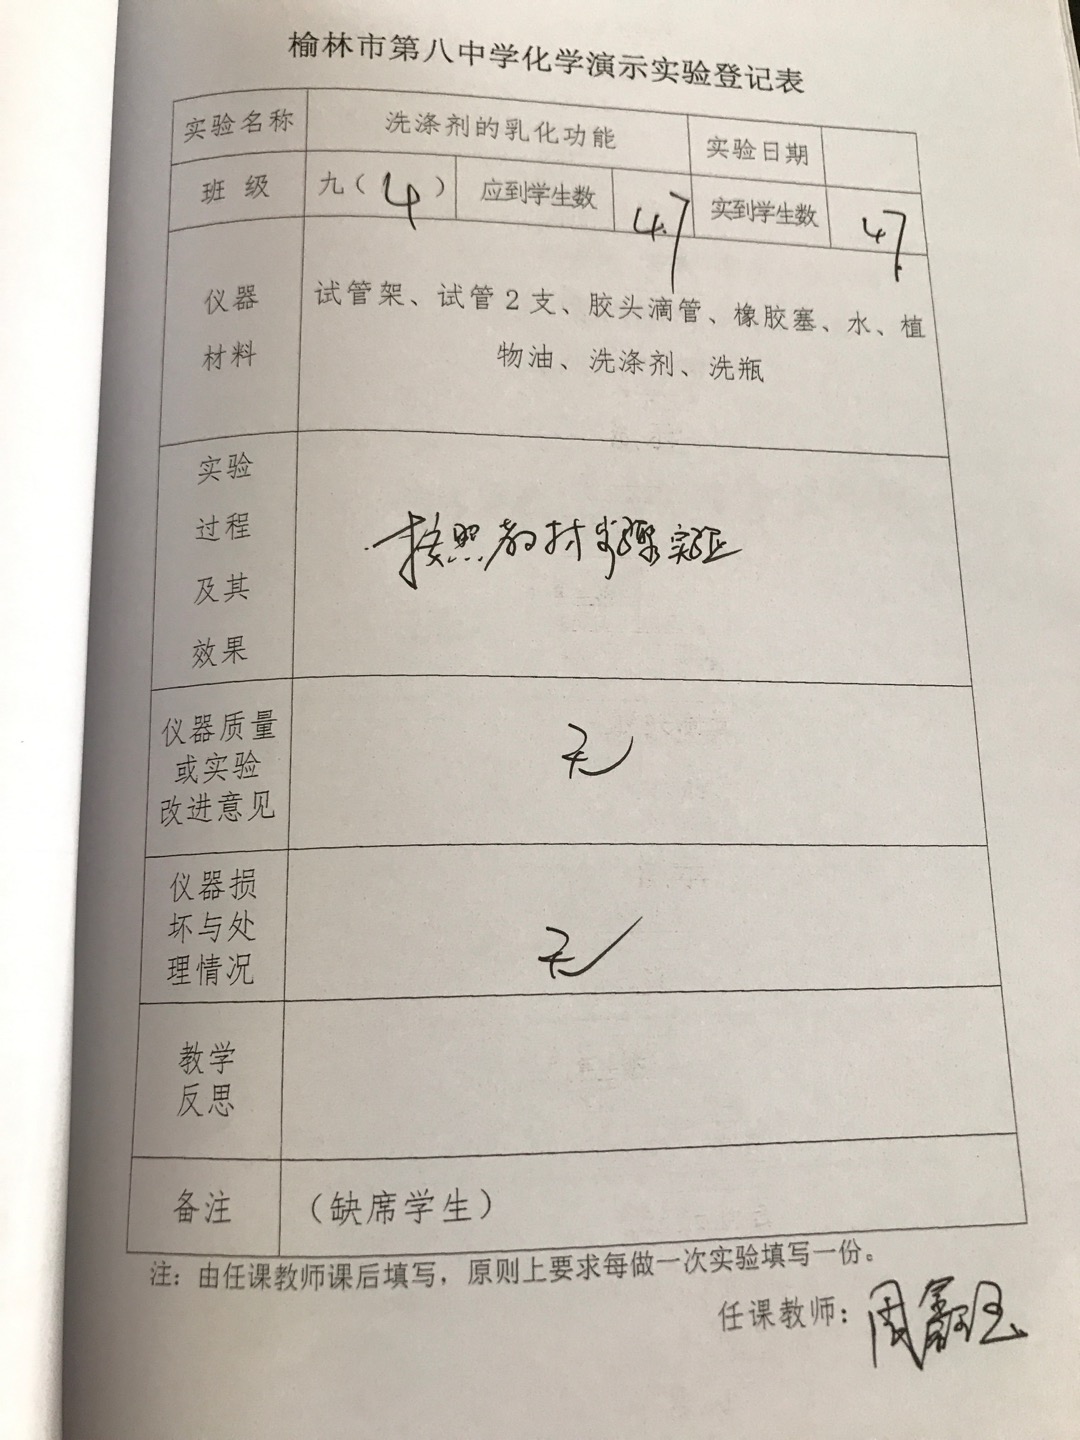 榆林市第八中学化学演示实验登记表
实验名称 洗涤剂的乳化功能 实验日期
班 级 九（4） 应到学生数 47 实到学生数 47
仪器
材料
试管架、试管2支、胶头滴管、橡胶塞、水、植
物油、洗涤剂、洗瓶
实验
过程
及其
效果
按照教材步骤实验
仪器质量
或实验
改进意见
无
仪器损
坏与处
理情况
无
教学
反思
备注 （缺席学生）
注：由任课教师课后填写，原则上要求每做一次实验填写一份。
任课教师：周